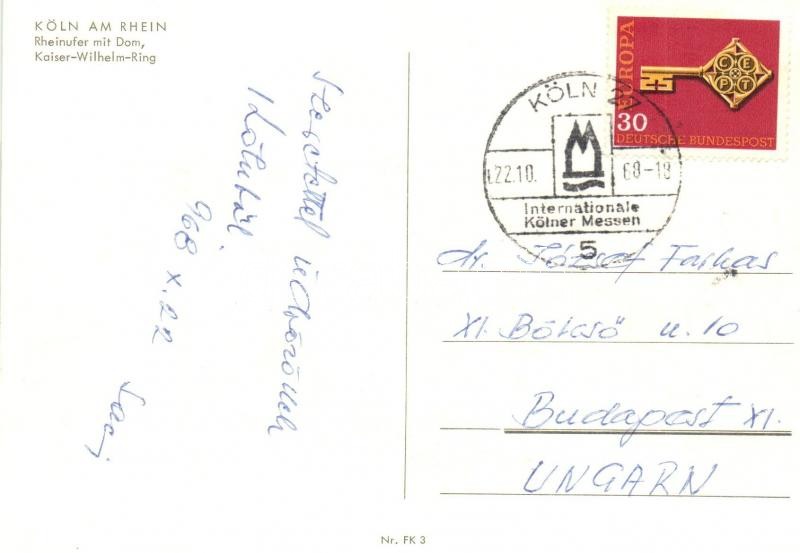 KÖLN AM RHEIN
Rheinufer mit Dom,
Kaiser-Wilhelm-Ring
Szeretettel üdvözöllek
Kölnből,
968 X. 22
Laci
EUROPA
CEPT
30
DEUTSCHE BUNDESPOST
KÖLN 21
22.10. 68-18
Internationale
Kölner Messen
5
dr. József Farkas
XI. Bölcső u. 10
Budapest XI.
UNGARN
Nr. FK 3